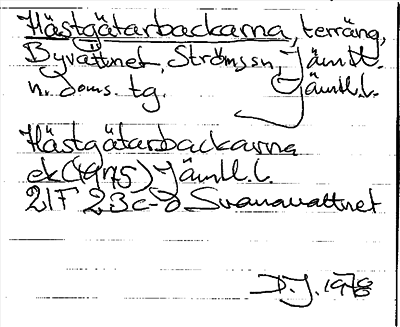 Hästgätarbackarna, terräng,
Byvattnet, Strömssn, Jämtl.
n. doms. tg. Jämtl.l.
Hästgätarbackarna
ek (1975) Jämtl.l.
21F 23c-d Svanavattnet
D.J. 1978